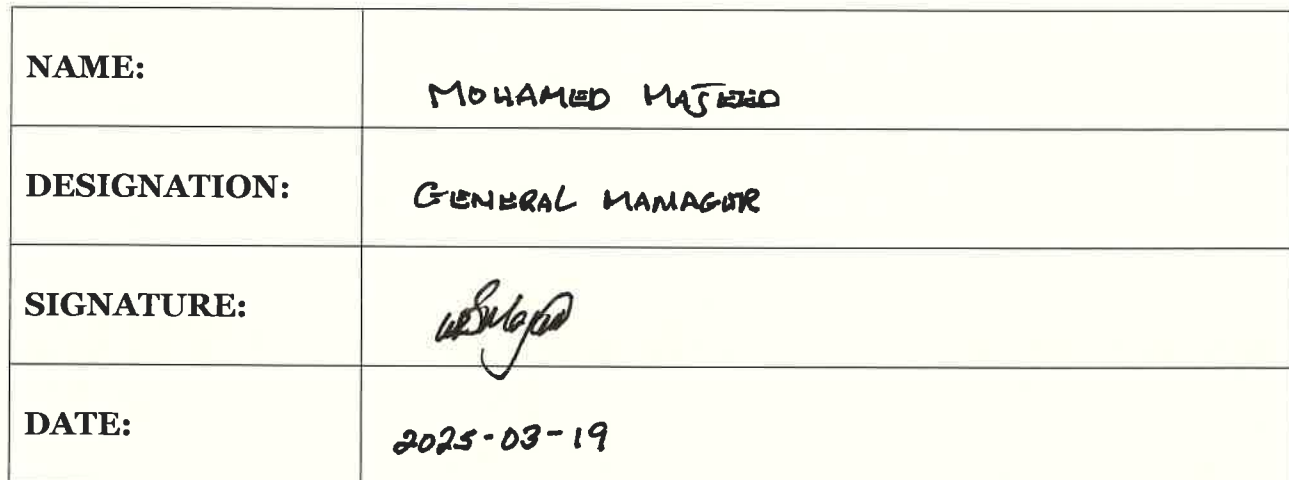 NAME: MOHAMED MAJEED
DESIGNATION: GENERAL MANAGER
SIGNATURE:
DATE: 2025-03-19